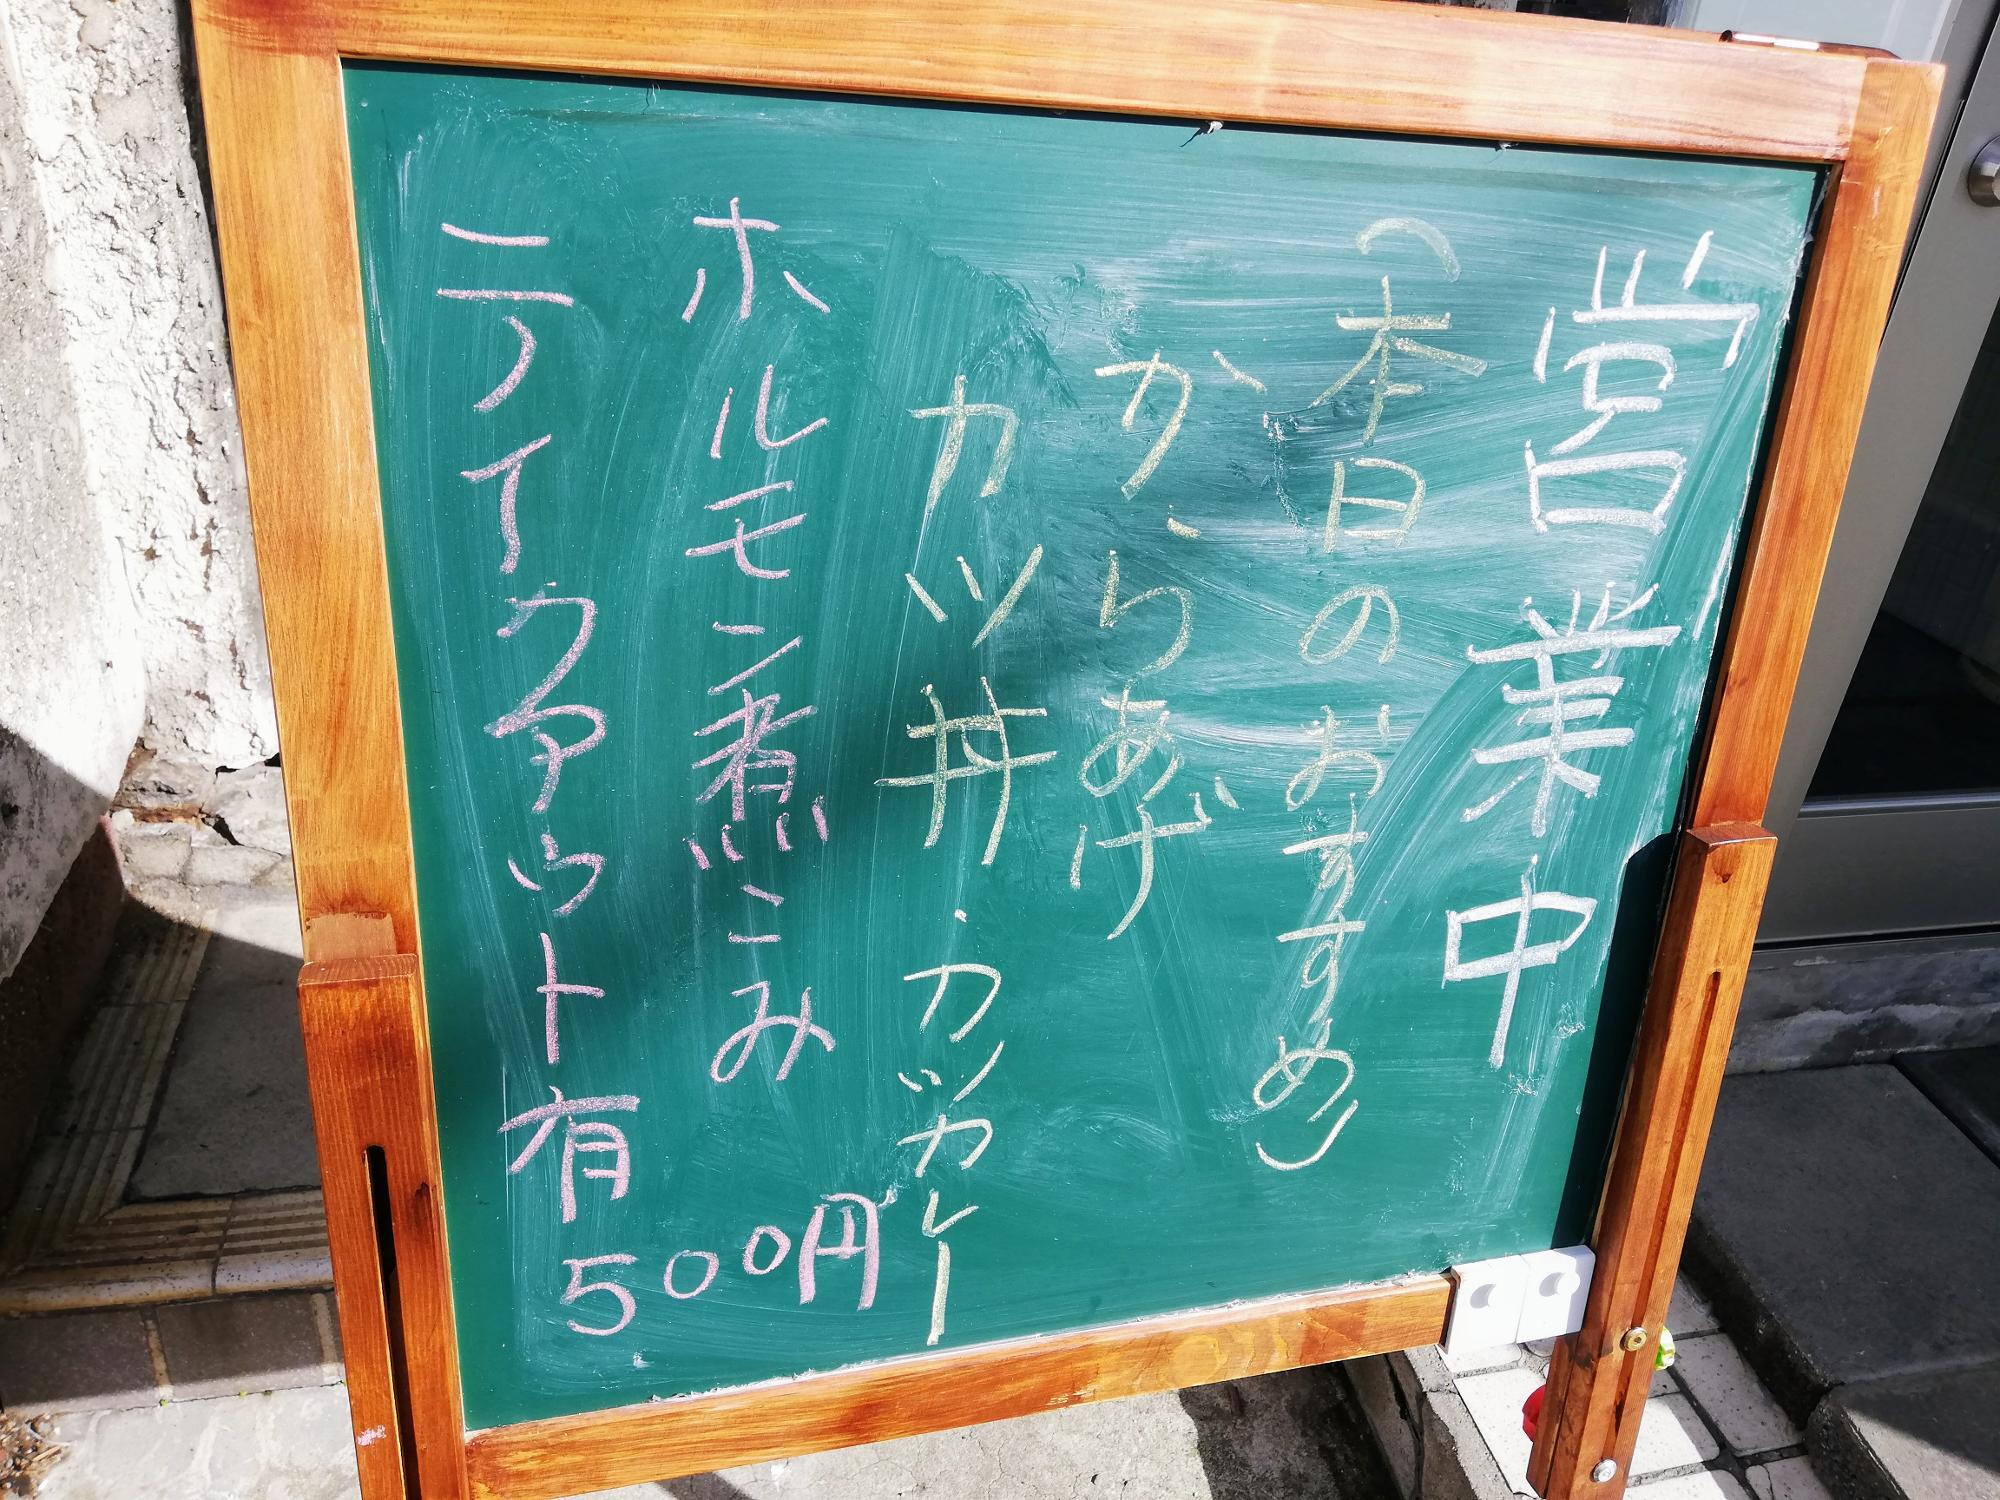 営業中
(本日のおすすめ)
からあげ
カツ丼・カツカレー
ホルモン煮こみ
テイクアウト有
500円